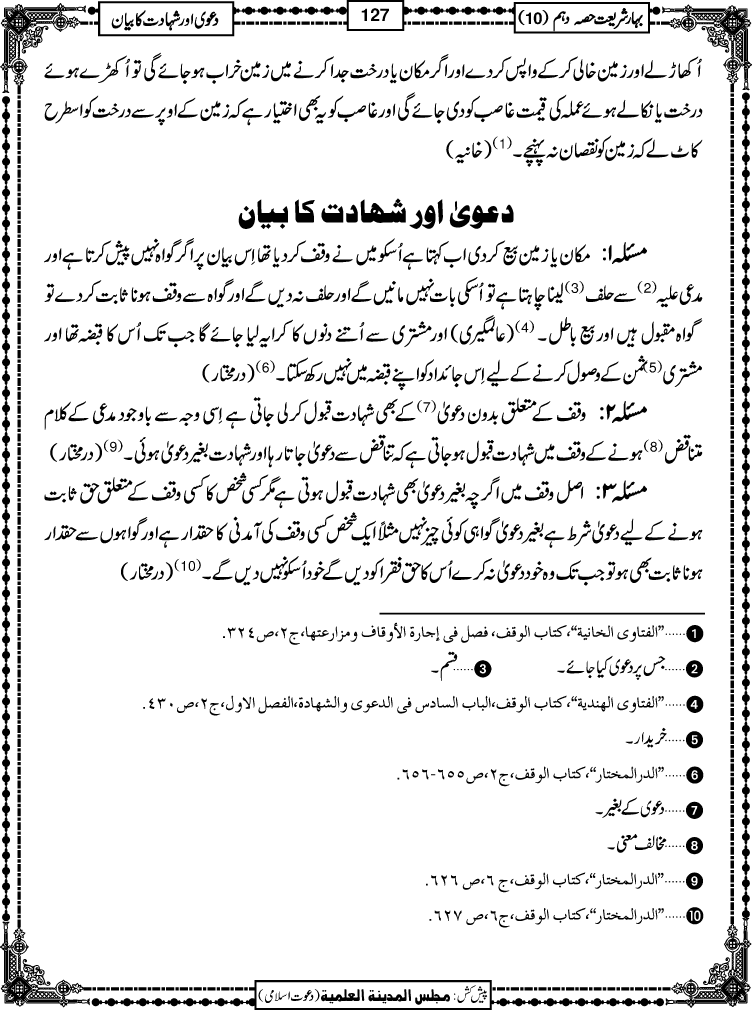 بہارشریعت حصہ دہم (10)
127
دعویٰ اور شہادت کا بیان
اُکھاڑلے اور زمین خالی کرکے واپس کردے اور اگر مکان یا درخت جدا کرنے میں زمین خراب ہوجائے گی تو اُکھڑے ہوئے
درخت یا نکالے ہوئے عملہ کی قیمت غاصب کو دی جائے گی اور غاصب کو یہ بھی اختیار ہے کہ زمین کے اوپر سے درخت کو اسطرح
کاٹ لے کہ زمین کو نقصان نہ پہنچے۔(1) (خانیہ)
دعویٰ اور شھادت کا بیان
مسئلہ ۱: مکان یا زمین بیع کردی اب کہتا ہے اُسکو میں نے وقف کردیا تھا اِس بیان پر اگر گواہ نہیں پیش کرتا ہے اور
مدعی علیہ(2) سے حلف(3) لینا چاہتا ہے تو اُسکی بات نہیں مانیں گے اور حلف نہ دیں گے اور گواہ سے وقف ہونا ثابت کردے تو
گواہ مقبول ہیں اور بیع باطل۔(4) (عالمگیری) اور مشتری سے اُتنے دنوں کا کرایہ لیا جائے گا جب تک اُس کا قبضہ تھا اور
مشتری(5) ثمن کے وصول کرنے کے لیے اِس جائداد کو اپنے قبضہ میں نہیں رکھ سکتا۔(6) (درمختار)
مسئلہ ۲: وقف کے متعلق بدون دعویٰ(7) کے بھی شہادت قبول کرلی جاتی ہے اِسی وجہ سے باوجود مدعی کے کلام
متناقض(8) ہونے کے وقف میں شہادت قبول ہوجاتی ہے کہ تناقض سے دعویٰ جاتا رہا اور شہادت بغیر دعویٰ ہوئی۔(9) (درمختار)
مسئلہ ۳: اصل وقف میں اگرچہ بغیر دعویٰ بھی شہادت قبول ہوتی ہے مگر کسی شخص کا کسی وقف کے متعلق حق ثابت
ہونے کے لیے دعویٰ شرط ہے بغیر دعویٰ گواہی کوئی چیز نہیں مثلاً ایک شخص کسی وقف کی آمدنی کا حقدار ہے اور گواہوں سے حقدار
ہونا ثابت بھی ہو تو جب تک وہ خود دعویٰ نہ کرے اُس کا حق فقرا کو دیں گے خود اُسکو نہیں دیں گے۔(10) (درمختار)
1......"الفتاوی الخانیة"،کتاب الوقف، فصل فی إجارة الأوقاف ومزارعتها،ج۲،ص۳۲٤.
2......جس پر دعویٰ کیا جائے۔ 3......قسم۔
4......"الفتاوی الهندية"،کتاب الوقف،الباب السادس فی الدعوی والشهادة،الفصل الاول،ج۲،ص٤٣٠.
5......خریدار۔
6......"الدرالمختار"،کتاب الوقف،ج٢،ص٦٥٥-٦٥٦.
7......دعویٰ کے بغیر۔
8......مخالف معنی۔
9......"الدرالمختار"،کتاب الوقف، ج ٦،ص ٦٢٦.
10......"الدرالمختار"،کتاب الوقف،ج٦،ص ٦٢٧.
پیش کش: مجلس المدینة العلمیة (دعوت اسلامی)